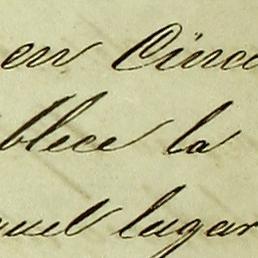 en Cinco
blece la
quel lugar